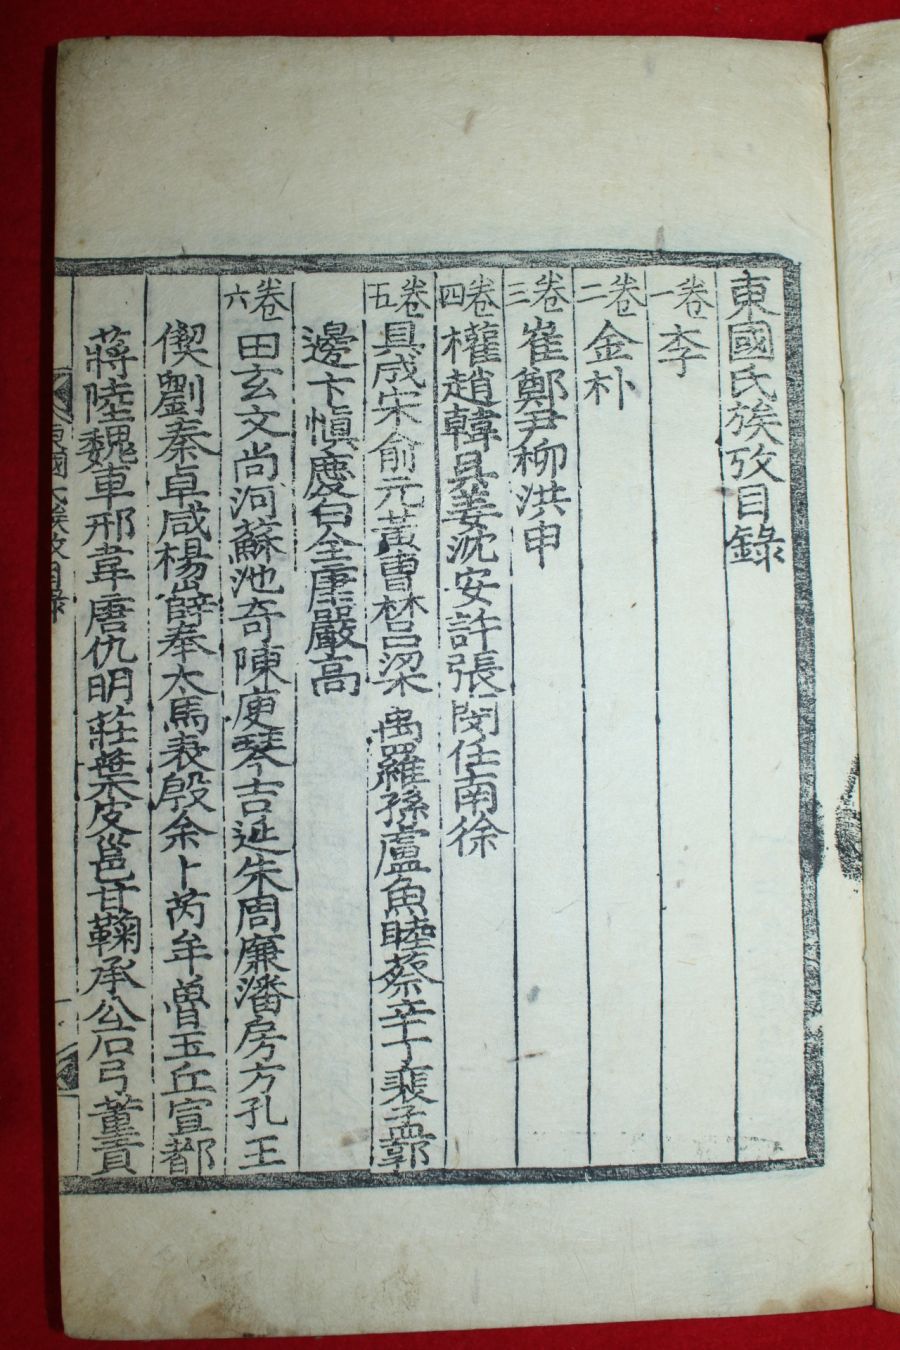 東國氏族攷目錄
卷一 李
卷二 金朴
卷三 崔鄭尹柳洪申
卷四 權趙韓吳姜沈安許張閔任南徐
卷五 具成宋俞元黃曹林呂梁禹羅孫盧魚睦蔡辛丁裴孟郭
邊卞愼慶白全康嚴高
卷六 田玄文尚河蘇池奇陳庾琴吉延朱周廉潘房方孔王
偰劉秦卓咸楊薛奉太馬表殷余卜芮牟魯玉丘宣都
蔣陸魏車邢韋唐仇明莊葉皮邕甘鞠承公石弓董賁
東國氏族攷目錄